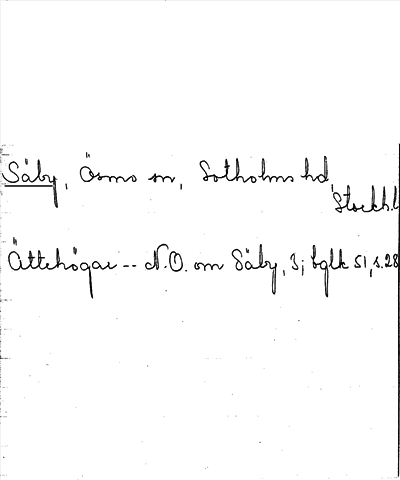 Säby, Ösmo sn, Sotholms hd,
Stockh.l
Ättehögar -- N.O. om Säby, 3; bglk 51, s.28